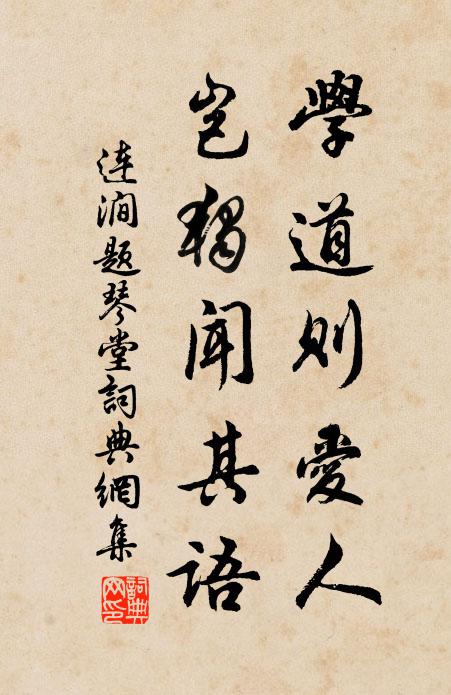 學道則愛人
豈獨聞其語
連澗題琴堂詞典網集
詞典網印